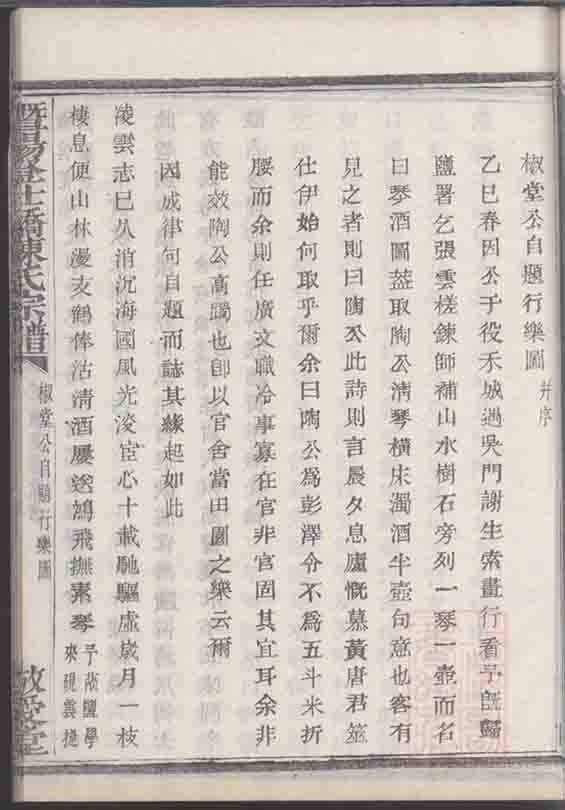 椒堂公自題行樂圖 并序
乙巳春因公于役禾城過吳門謝生索畫行看予旣歸
鹽署乞張雲槎鍊師補山水樹石旁列一琴一壺而名
曰琴酒圖蓋取陶公淸琴橫床濁酒半壺句意也客有
見之者則曰陶公此詩則言晨夕息廬慨慕黃唐君筮
仕伊始何取乎爾余曰陶公爲彭澤令不爲五斗米折
腰而余則任廣文職冷事寡在官非官固其宜耳余非
能效陶公高躅也卽以官舍當田園之樂云爾
因成律句自題而誌其緣起如此
凌雲志已久消沉海國風光淡宦心十載馳驅虛歲月一枝
棲息便山林漫支鶴俸沽淸酒屢送鴻飛撫素琴 予
暨陽 橋陳氏宗譜
椒堂公自題行樂圖